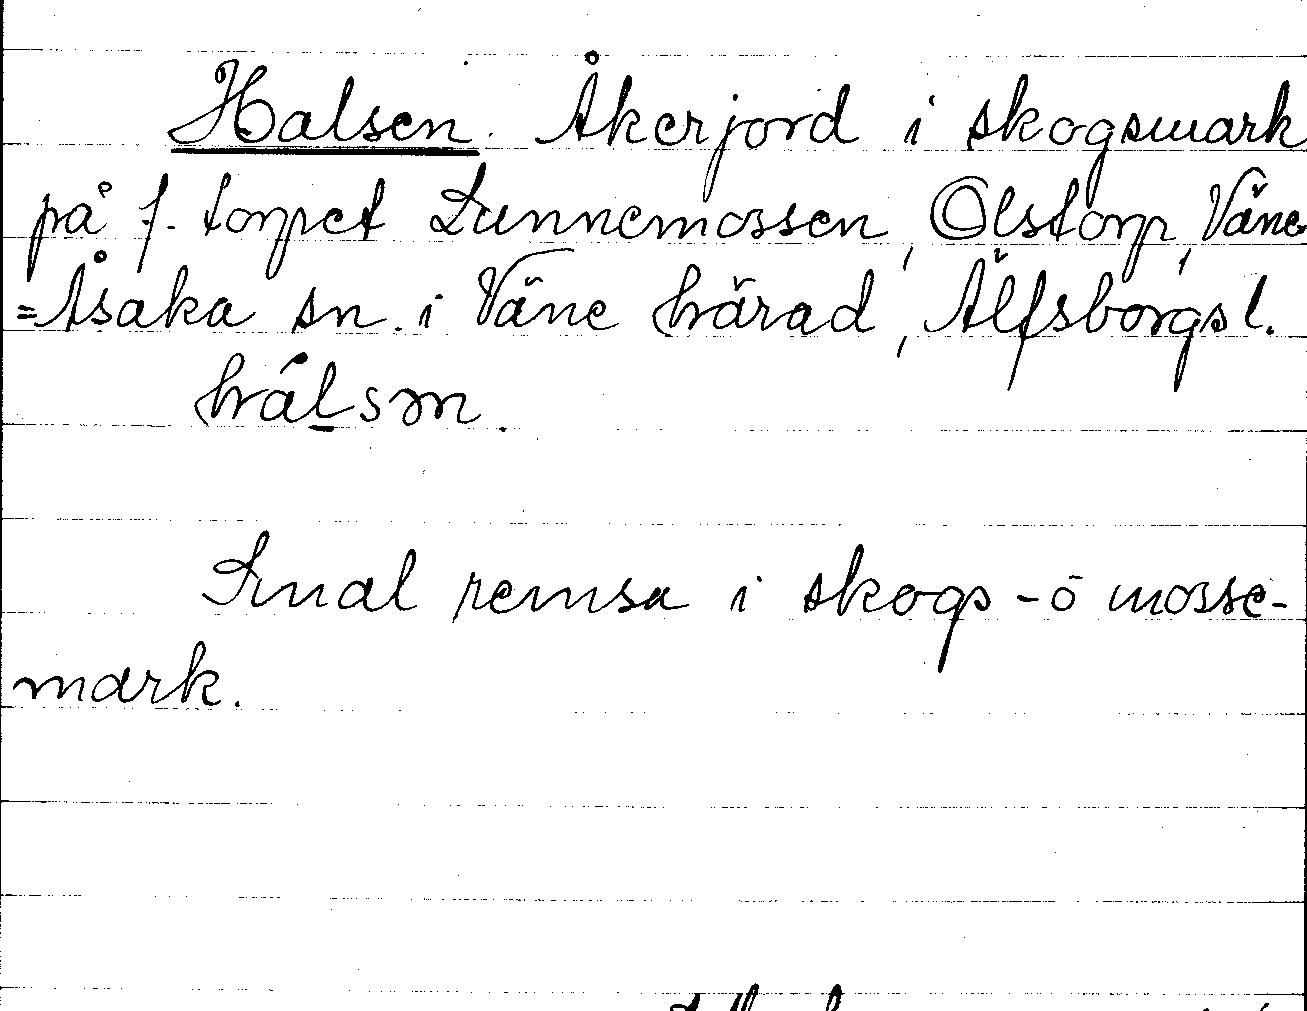 Halsen. Åkerjord i skogsmark
på f. torpet Lunnemossen, Olstorp, Väne
=Åsaka sn. i Väne härad, Älfsborgs l.
hálsm.
Smal remsa i skogs- o mosse-
mark.